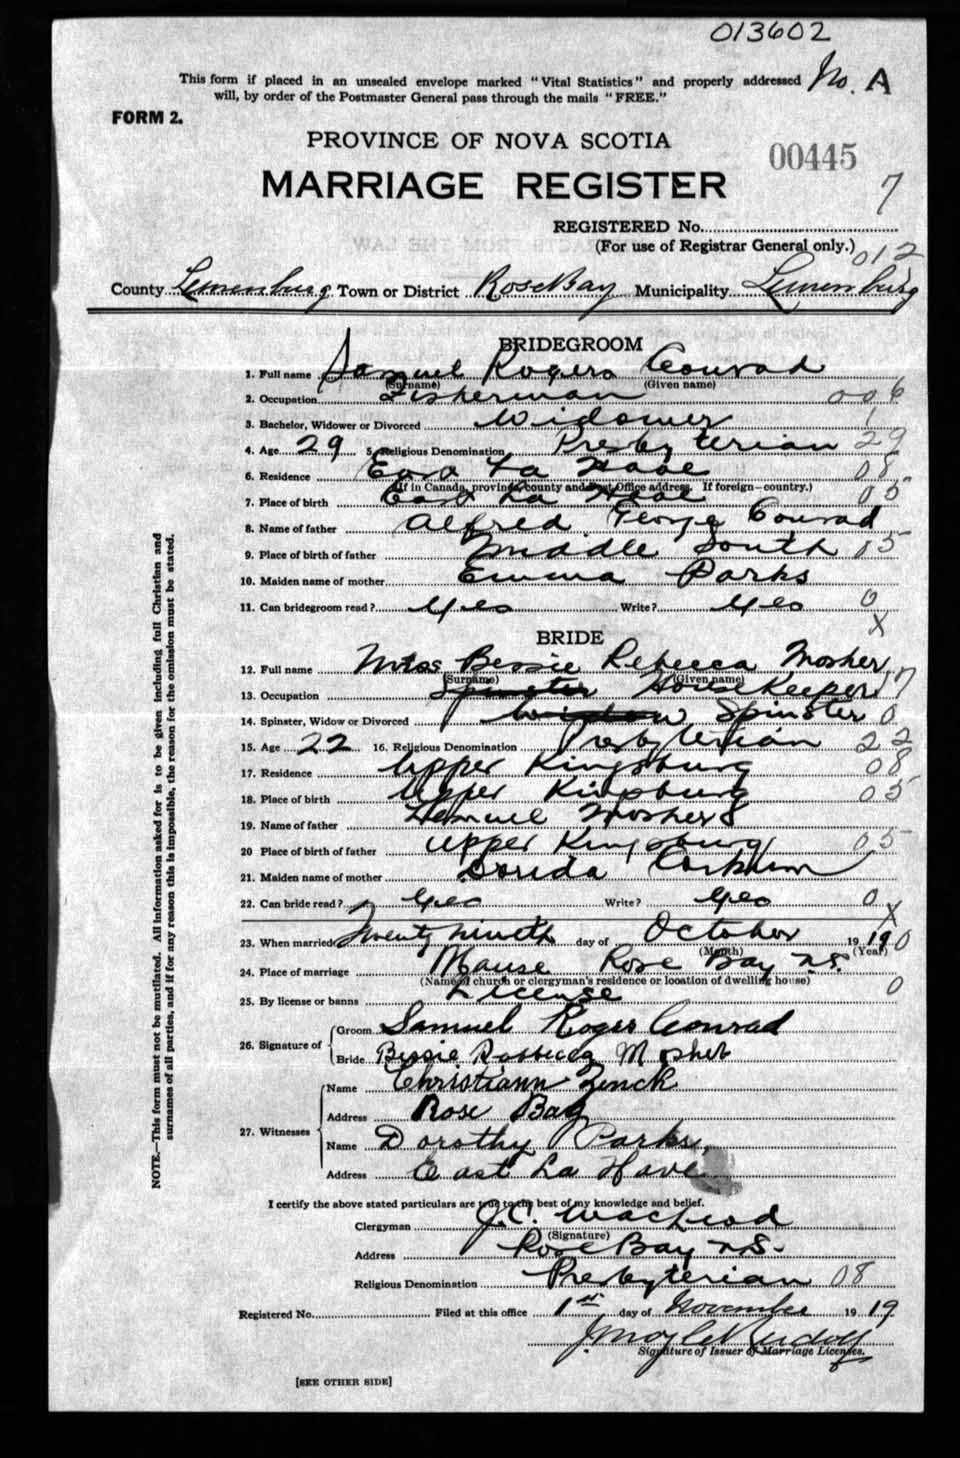 013602
This form if placed in an unsealed envelope marked "Vital Statistics" and properly addressed No. A
will, by order of the Postmaster General pass through the mails "FREE."
FORM 2.
PROVINCE OF NOVA SCOTIA
00445
MARRIAGE REGISTER
7
REGISTERED No.
(For use of Registrar General only.)
012
County Lunenburg Town or District Rose Bay Municipality Lunenburg
BRIDEGROOM
1. Full name Samuel Rogers Conrad
(Surname) (Given name)
2. Occupation Fisherman 006
3. Bachelor, Widower or Divorced Widower 1
4. Age 29 5. Religious Denomination Presbyterian 29
6. Residence East La Have 08
(If in Canada, province, county and post Office address. If foreign—country.)
7. Place of birth East La Have 05
8. Name of father Alfred George Conrad
9. Place of birth of father Middle South 05
10. Maiden name of mother Emma Parks
11. Can bridegroom read? Yes Write? Yes 0
X
BRIDE
12. Full name Miss Bessie Rebecca Mosher
(Surname) (Given name)
13. Occupation Spinster House Keeper 17
14. Spinster, Widow or Divorced Widow Spinster 0
15. Age 22 16. Religious Denomination Presbyterian 22
17. Residence Upper Kingsburg 08
18. Place of birth Upper Kingsburg 05
19. Name of father Lemuel Mosher
20 Place of birth of father Upper Kingsburg 05
21. Maiden name of mother Corkum
22. Can bride read? Yes Write? Yes 0
X
23. When married Twenty nineth day of October 19 19 0
(Month) (Year)
24. Place of marriage Manse Rose Bay N.S.
(Name of church or clergyman's residence or location of dwelling house)
25. By license or banns License 0
26. Signature of
Groom Samuel Roger Conrad
Bride Bessie Mosher
27. Witnesses
Name Christiann Zinck
Address Rose Bay
Name Dorothy Parks
Address East La Have
I certify the above stated particulars are true to the best of my knowledge and belief.
Clergyman J.C. MacLeod
(Signature)
Address Rose Bay N.S.
Religious Denomination Presbyterian 08
Registered No. Filed at this office 1st day of November 19 19.
Rudolf
Signature of Issuer of Marriage Licenses.
[SEE OTHER SIDE]
NOTE.—This form must not be mutilated. All information asked for is to be given including full Christian and
surnames of all parties, and if for any reason this is impossible, the reason for the omission must be stated.